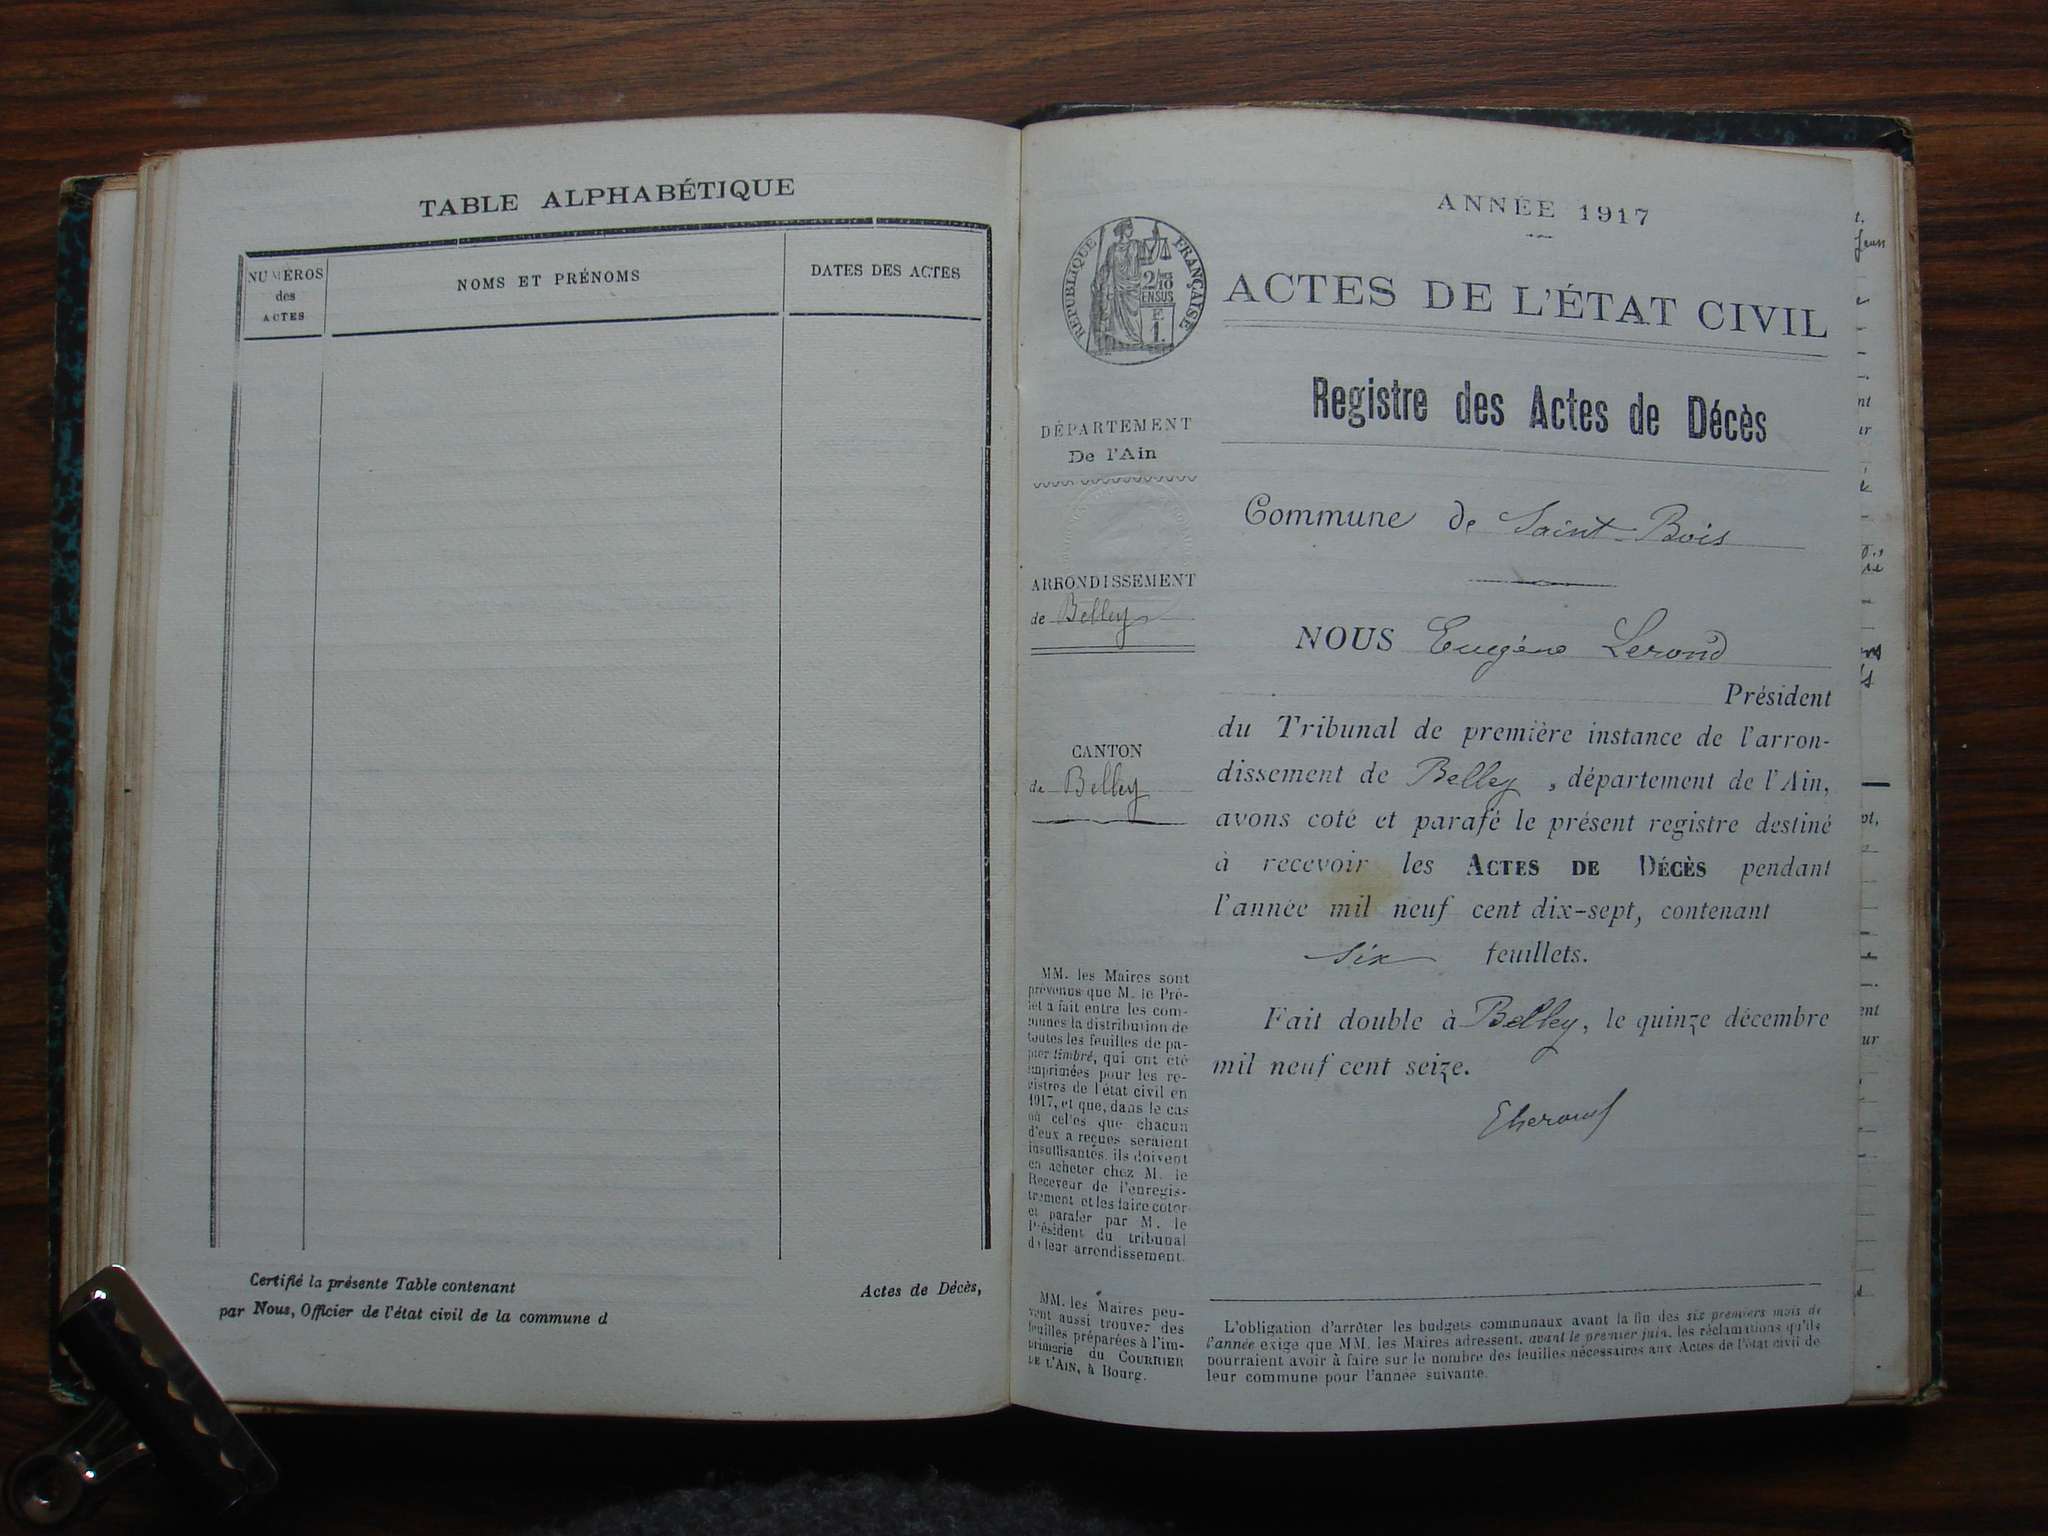 TABLE ALPHABÉTIQUE
NUMÉROS
des
ACTES
NOMS ET PRÉNOMS
DATES DES ACTES
Certifié la présente Table contenant Actes de Décès,
par Nous, Officier de l'état civil de la commune d
ANNÉE 1917
RÉPUBLIQUE FRANÇAISE
2/10
EN SUS
F
1.
ACTES DE L'ÉTAT CIVIL
Registre des Actes de Décès
DÉPARTEMENT
De l'Ain
Commune de Saint-Bois
ARRONDISSEMENT
de Belley
NOUS Eugène
Président
du Tribunal de première instance de l'arron-
dissement de Belley, département de l'Ain,
avons coté et parafé le présent registre destiné
à recevoir les ACTES DE DÉCÈS pendant
l'année mil neuf cent dix-sept, contenant
six feuillets.
Fait double à Belley, le quinze décembre
mil neuf cent seize.
CANTON
de Belley
MM. les Maires sont
prévenus que M. le Pré-
fet a fait entre les com-
munes la distribution de
toutes les feuilles de pa-
pier timbré, qui ont été
imprimées pour les re-
gistres de l'état civil en
1917, et que, dans le cas
où celles que chacun
d'eux a reçues seraient
insuffisantes, ils doivent
en acheter chez M. le
Receveur de l'enregis-
trement et les faire coter
et parafer par M. le
Président du tribunal
de leur arrondissement.
MM. les Maires peu-
vent aussi trouver des
feuilles préparées à l'im-
primerie du COURRIER
DE L'AIN, à Bourg.
L'obligation d'arrêter les budgets communaux avant la fin des six premiers mois de
l'année exige que MM. les Maires adressent, avant le premier juin, les réclamations qu'ils
pourraient avoir à faire sur le nombre des feuilles nécessaires aux Actes de l'état civil de
leur commune pour l'année suivante.